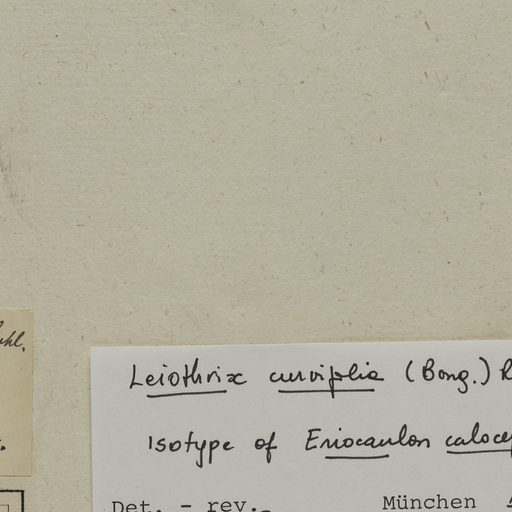 Leiothrix curvifolia (Bong.) R
Isotype of Eriocaulon caloce
Det. - rev.      München